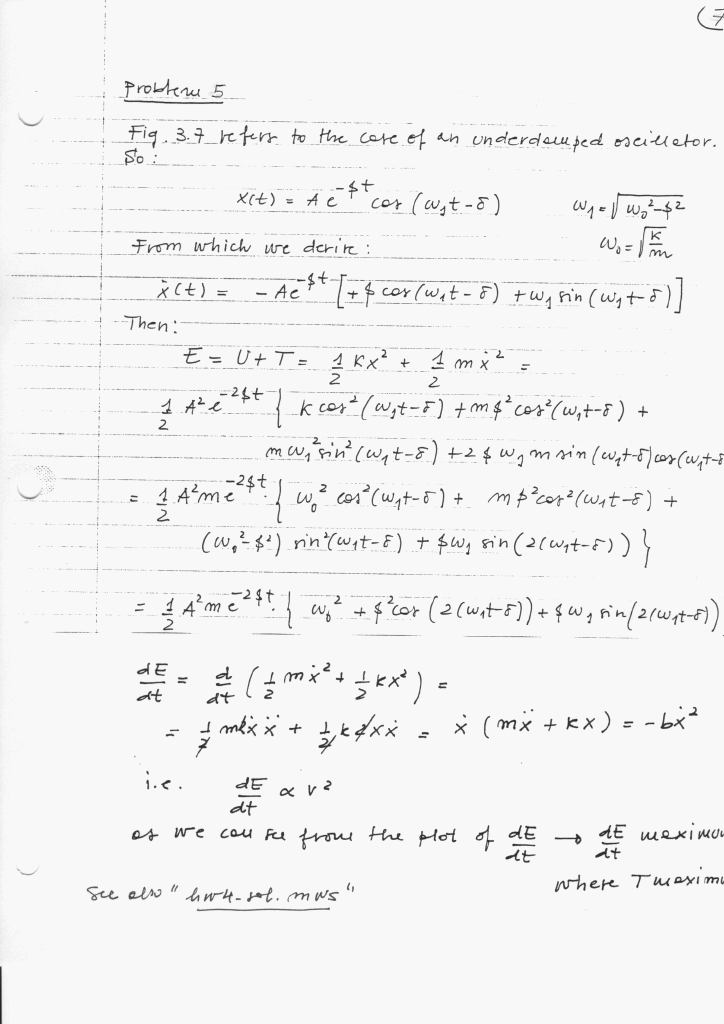 7
Problem 5
Fig. 3.7 refers to the case of an underdamped oscillator.
So:
x(t) = A e^{-βt} cos (ω₁t-δ)    ω₁ = √(ω₀²-β²)
From which we derive:    ω₀ = √(k/m)
ẋ(t) = - Ae^{-βt} [+β cos(ω₁t-δ) + ω₁ sin(ω₁t-δ)]
Then:
E = U + T = 1/2 kx² + 1/2 m ẋ² =
1/2 A² e^{-2βt} { k cos²(ω₁t-δ) + mβ² cos²(ω₁t-δ) +
mω₁² sin²(ω₁t-δ) + 2 β ω₁ m sin(ω₁t-δ) cos(ω₁t-δ
= 1/2 A² m e^{-2βt}. { ω₀² cos²(ω₁t-δ) + mβ² cos²(ω₁t-δ) +
(ω₀²-β²) sin²(ω₁t-δ) + βω₁ sin(2(ω₁t-δ)) }
= 1/2 A² m e^{-2βt}. { ω₀² + β² cos(2(ω₁t-δ)) + β ω₁ sin(2(ω₁t-δ))
dE/dt = d/dt (1/2 mẋ² + 1/2 kx²) =
= 1/2 m2ẋẍ + 1/2 k2xẋ = ẋ (mẍ + kx) = -bẋ²
i.e. dE/dt ∝ v²
as we can see from the plot of dE/dt → dE/dt maximu
where T maximu
See also "hw4-sol.mws"